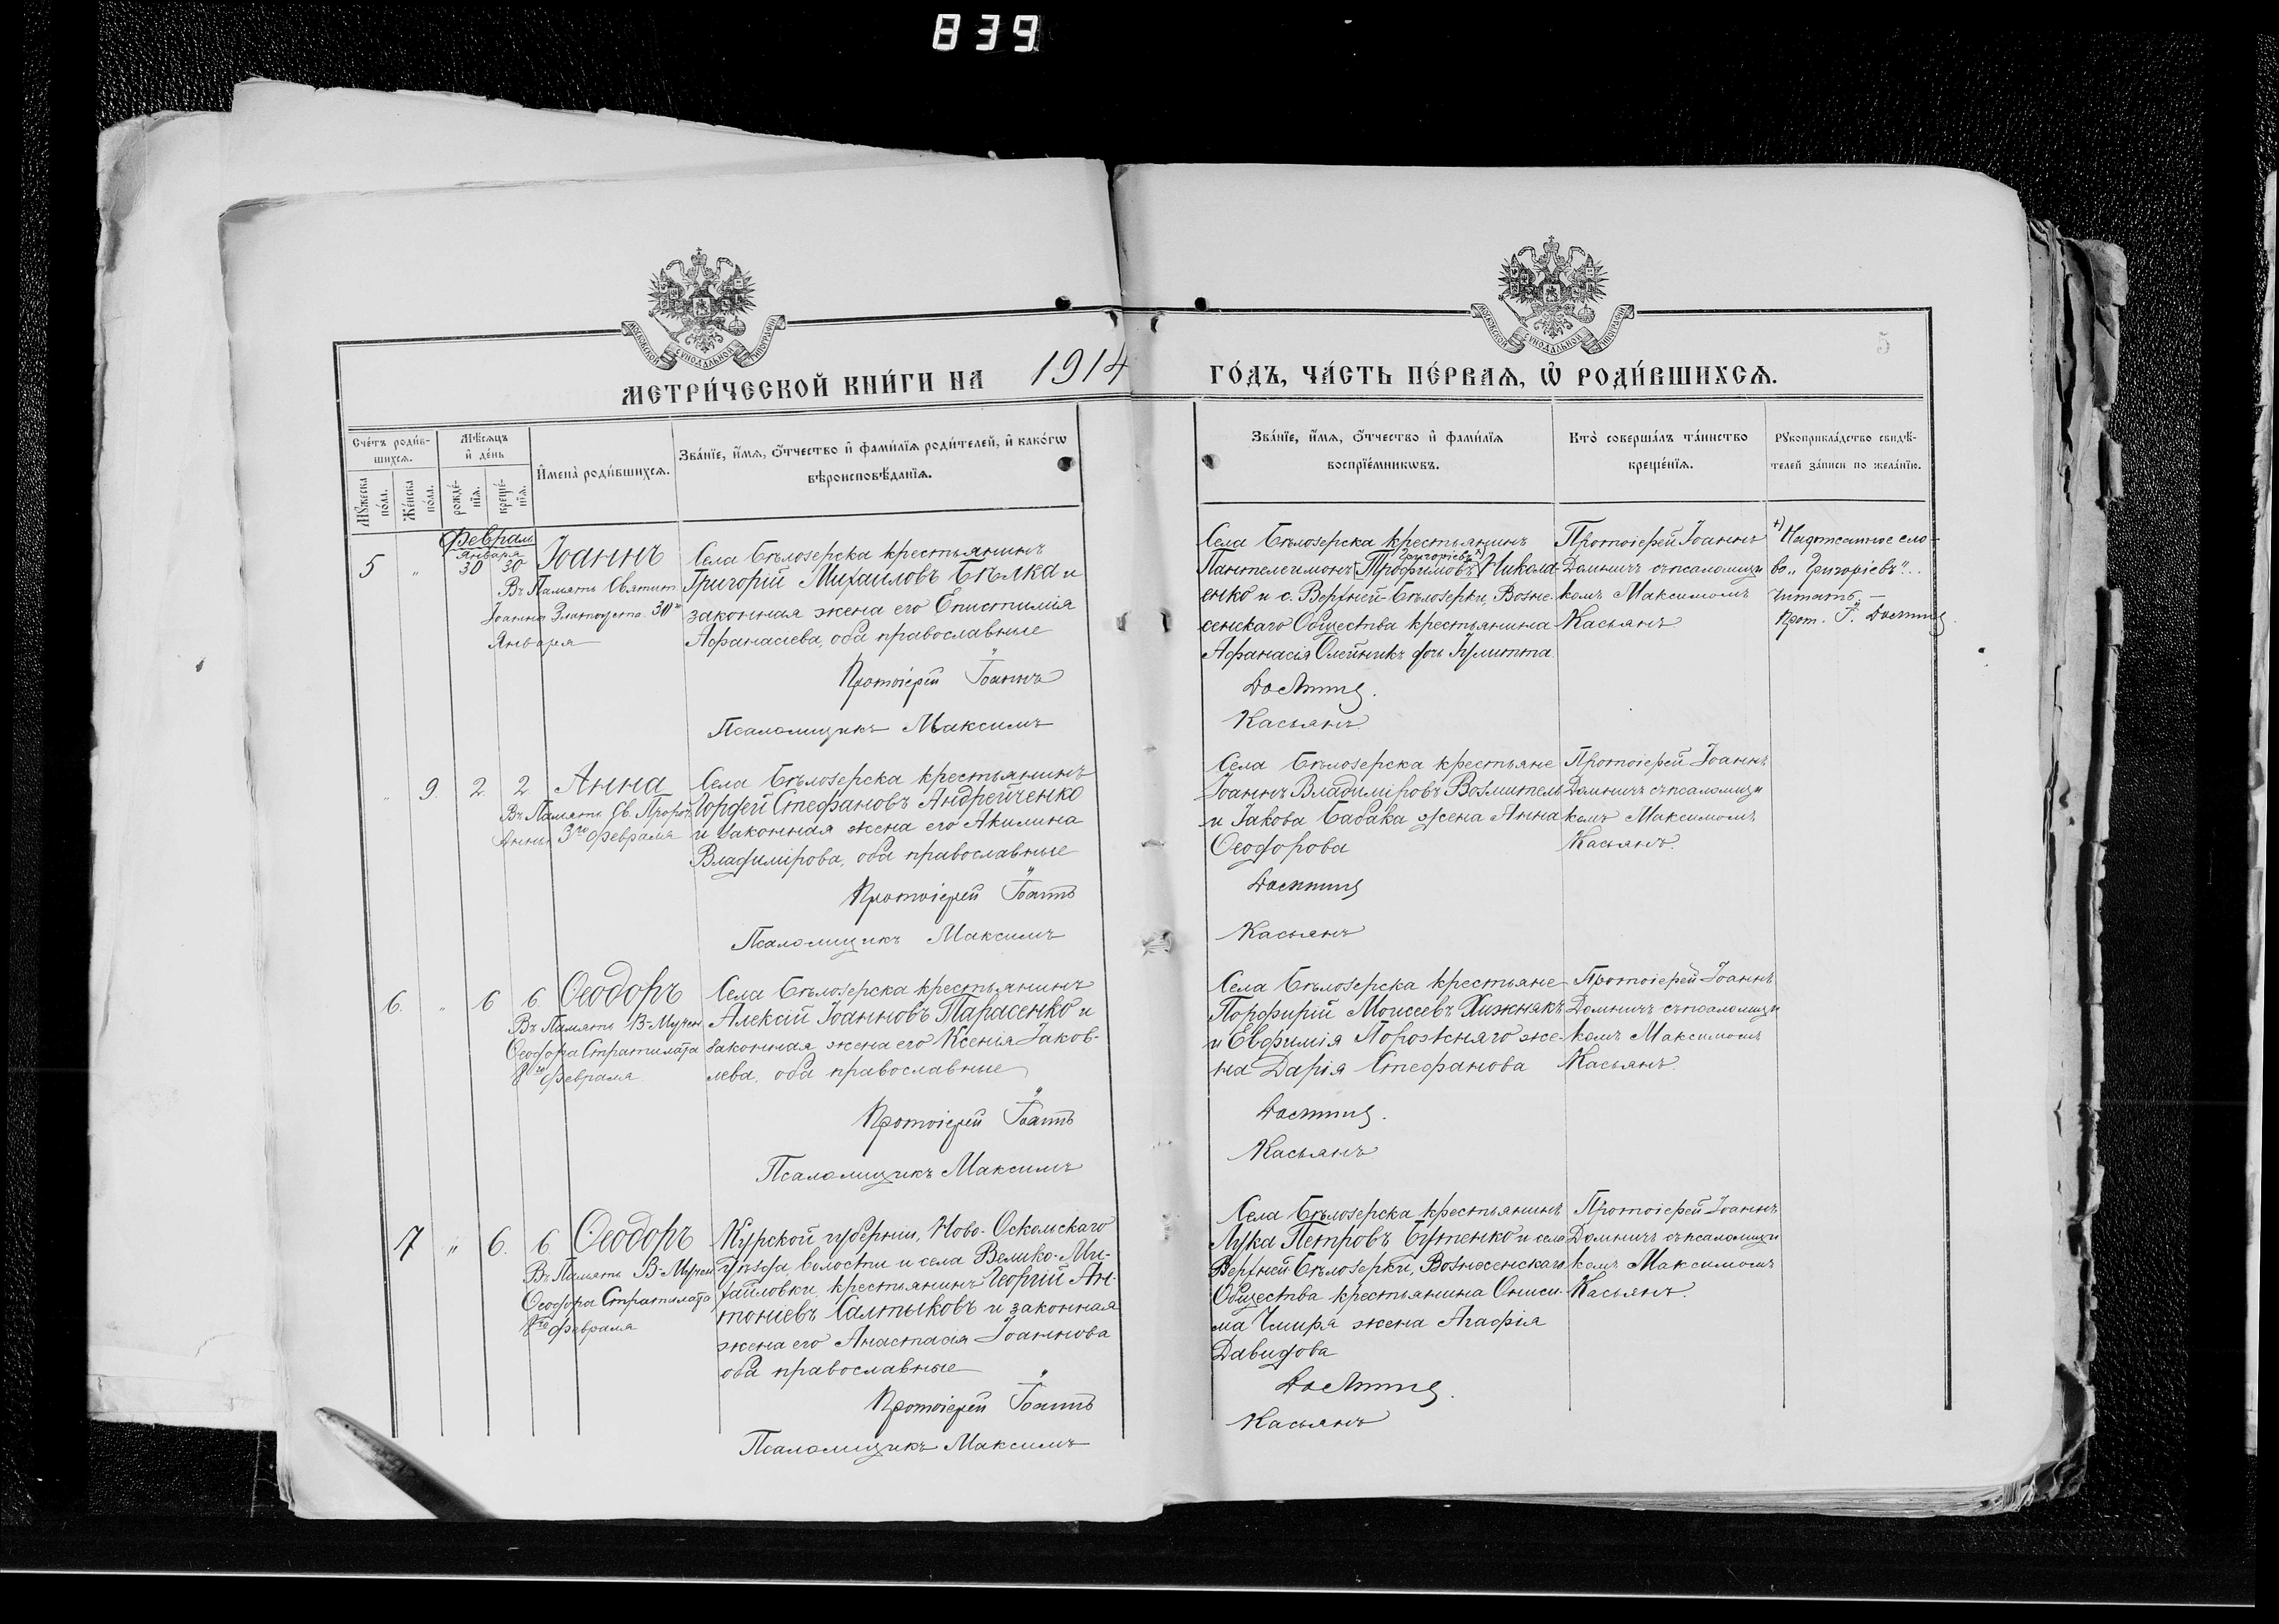 839
МОСКОВСКОЙ СѴНОДАЛЬНОЙ ТИПОГРАФІИ
МОСКОВСКОЙ СѴНОДАЛЬНОЙ ТИПОГРАФІИ
5
МЕТРИ́ЧЕСКОЙ КНИ́ГИ НА 1914 ГО́ДЪ, ЧА́СТЬ ПЕ́РВАѦ, Ѡ҆ РОДИ́ВШИХСѦ.
Сче́тъ роди́в-
шихсѧ.
Мꙋ́жеска
по́ла.
Же́нска
по́ла.
Мѣ́сѧцъ
и҆ де́нь
рожде́-
нїѧ.
креще́-
нїѧ.
И҆мена̀ роди́вшихсѧ.
Зва́нїе, и҆́мѧ, ѻ҆́тчество и҆ фами́лїѧ роди́телей, и҆ како́гѡ
вѣроисповѣ́данїѧ.
Зва́нїе, и҆́мѧ, ѻ҆́тчество и҆ фами́лїѧ
воспрїе́мникѡвъ.
Кто̀ соверша́лъ та́инство
креще́нїѧ.
Рꙋкоприкла́дство свидѣ́-
телей за́писи по жела́нїю.
Февраль
Января
5 " 30 30 Іоаннъ
Въ Память Святит.
Іоанна Златоуста 30го
Января
Села Бѣлозерска крестьянинъ
Григорій Михаиловъ Бѣлка и
законная жена его Епистимія
Афанасіева, оба православные
Протоіерей Іоаннъ
Псаломщикъ Максимъ
Села Бѣлозерска крестьянинъ
Григоріевъ +)
Пантелеимонъ [Трофимовъ] Никола-
енко и с. Верхней-Бѣлозерки, Возне-
сенскаго Общества крестьянина
Афанасія Олейникъ дочь Іулитта
Касьянъ
Протоіерей Іоаннъ
Домничъ съ псаломщи
комъ Максимомъ
Касьянъ
+) Надписанное сло-
во „Григоріевъ"
читать. —
Прот. І.
" 9 2 2 Анна
Въ Память Св. Пророч.
Анны 3го Февраля
Села Бѣлозерска крестьянинъ
Іорфей Стефановъ Андрейченко
и законная жена его Акилина
Владимірова, оба православные
Протоіерей Іоаннъ
Псаломщикъ Максимъ
Села Бѣлозерска крестьяне
Іоаннъ Владиміровъ Возмитель
и Іакова Бабака жена Анна
Ѳеодорова
Касьянъ
Протоіерей Іоаннъ
Домничъ съ псаломщи
комъ Максимомъ
Касьянъ.
6. " 6 6. Ѳеодоръ
Въ Память В-Мучен.
Ѳеодора Стратилата
8го Февраля
Села Бѣлозерска крестьянинъ
Алексій Іоанновъ Тарасенко и
законная жена его Ксенія Іаков-
лева, оба православные
Протоіерей Іоаннъ
Псаломщикъ Максимъ
Села Бѣлозерска крестьяне
Порфирій Моисеевъ Хижнякъ
и Евфимія Порожняго же-
на Дарія Стефанова
Касьянъ
Протоіерей Іоаннъ
Домничъ съ псаломщи
комъ Максимомъ
Касьянъ.
7 " 6. 6. Ѳеодоръ
Въ Память В-Мучен
Ѳеодора Стратилата
8го Февраля
Курской губерніи, Ново-Оскольскаго
уѣзда волости и села Велико-Ми-
хайловки, крестьянинъ Георгій Ан-
тоніевъ Салтыковъ и законная
жена его Анастасія Іоаннова
оба православные
Протоіерей Іоаннъ
Псаломщикъ Максимъ
Села Бѣлозерска крестьянинъ
Лука Петровъ Бутенко и села
Верхней-Бѣлозерки, Вознесенскаго
Общества крестьянина Ониси-
ма Чмиря жена Агафія
Давидова
Касьянъ
Протоіерей Іоаннъ
Домничъ съ псаломщи
комъ Максимомъ
Касьянъ.